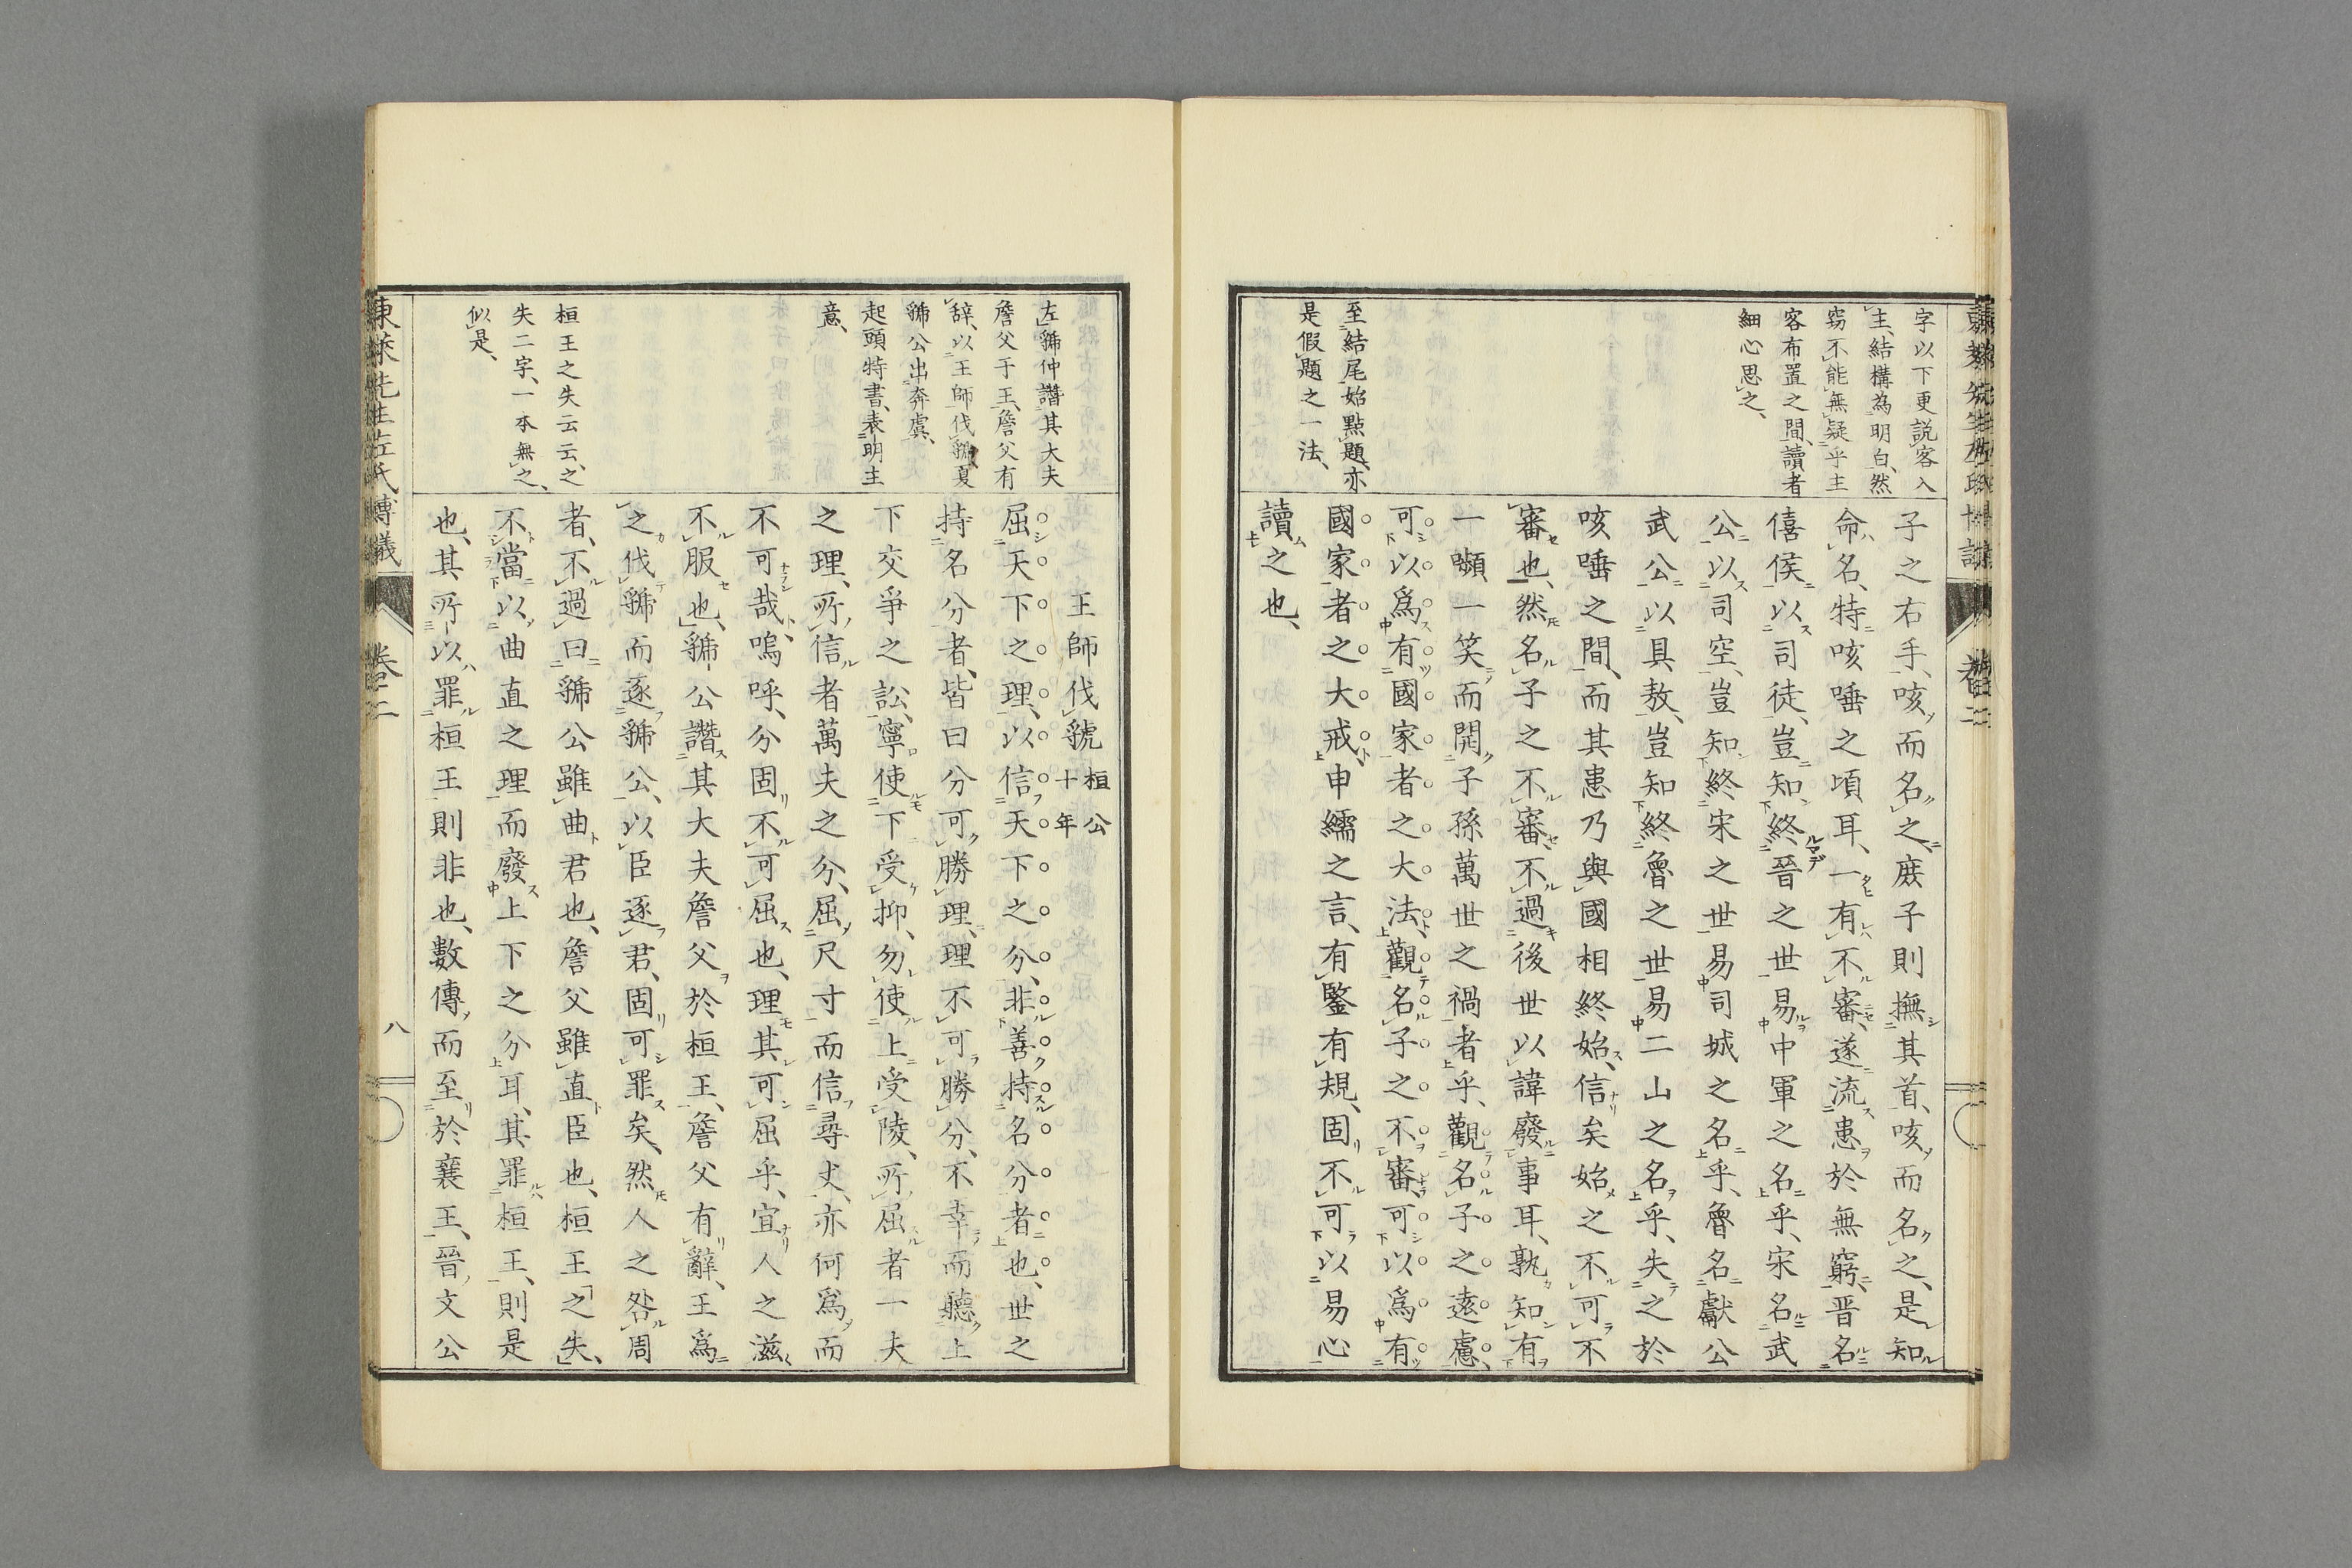 字以下更説客入
主結構為明白、然
窃不能無疑乎主
客布置之間、讀者
細心思之、
至結尾始點題、亦
是假題之一法、
子之右手、咳而名之、庶子則撫其首、咳而名之、是知
命名、特咳唾之頃耳、一有不審、遂流患於無窮、晋名
僖侯以司徒、豈知終晉之世易中軍之名乎、宋名武
公以司空、豈知終宋之世易司城之名乎、魯名獻公
武公以具敖、豈知終魯之世易二山之名乎、失之於
咳唾之間、而其患乃與國相終始、信矣始之不可不
審也、然名子之不審、不過後世以諱廢事耳、孰知有
一嚬一笑而開子孫萬世之禍者乎、觀名子之遠慮、
可以爲有國家者之大法、觀名子之不審、可以爲有
國家者之大戒、申繻之言、有鑒有規、固不可以易心
讀之也、
左虢仲譖其大夫
詹父于王、詹父有
辞、以王師伐虢夏
虢公出奔虞、
起頭特書、表明主
意、
桓王之失云云、之
失二字、一本無之、
似是、
王師伐虢 桓公十年
屈天下之理、以信天下之分、非善持名分者也、世之
持名分者、皆曰分可勝理、理不可勝分、不幸而聽上
下交爭之訟、寧使下受抑、勿使上受陵、所屈者一夫
之理、所信者萬夫之分、屈尺寸而信尋丈、亦何爲而
不可哉、嗚呼、分固不可屈也、理其可屈乎、宜人之滋
不服也、虢公譖其大夫詹父於桓王、詹父有辭、王爲
之伐虢而逐虢公、以臣逐君、固可罪矣、然人之咎周
者、不過曰虢公雖曲君也、詹父雖直臣也、桓王之失、
不當以曲直之理而廢上下之分耳、其罪桓王、則是
也、其所以罪桓王則非也、數傳而至於襄王、晉文公
東萊先生左氏博議
卷二
八